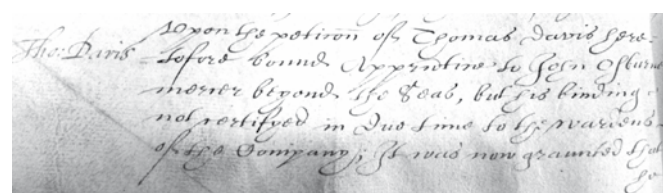 Upon the petition of Thomas Davis here=
Tho: Davis tofore bound Apprentice to John Osburne
mercer beyond the Seas, but his binding
not certifyed in due time to the wardens
of the Company; It was now graunted that
he